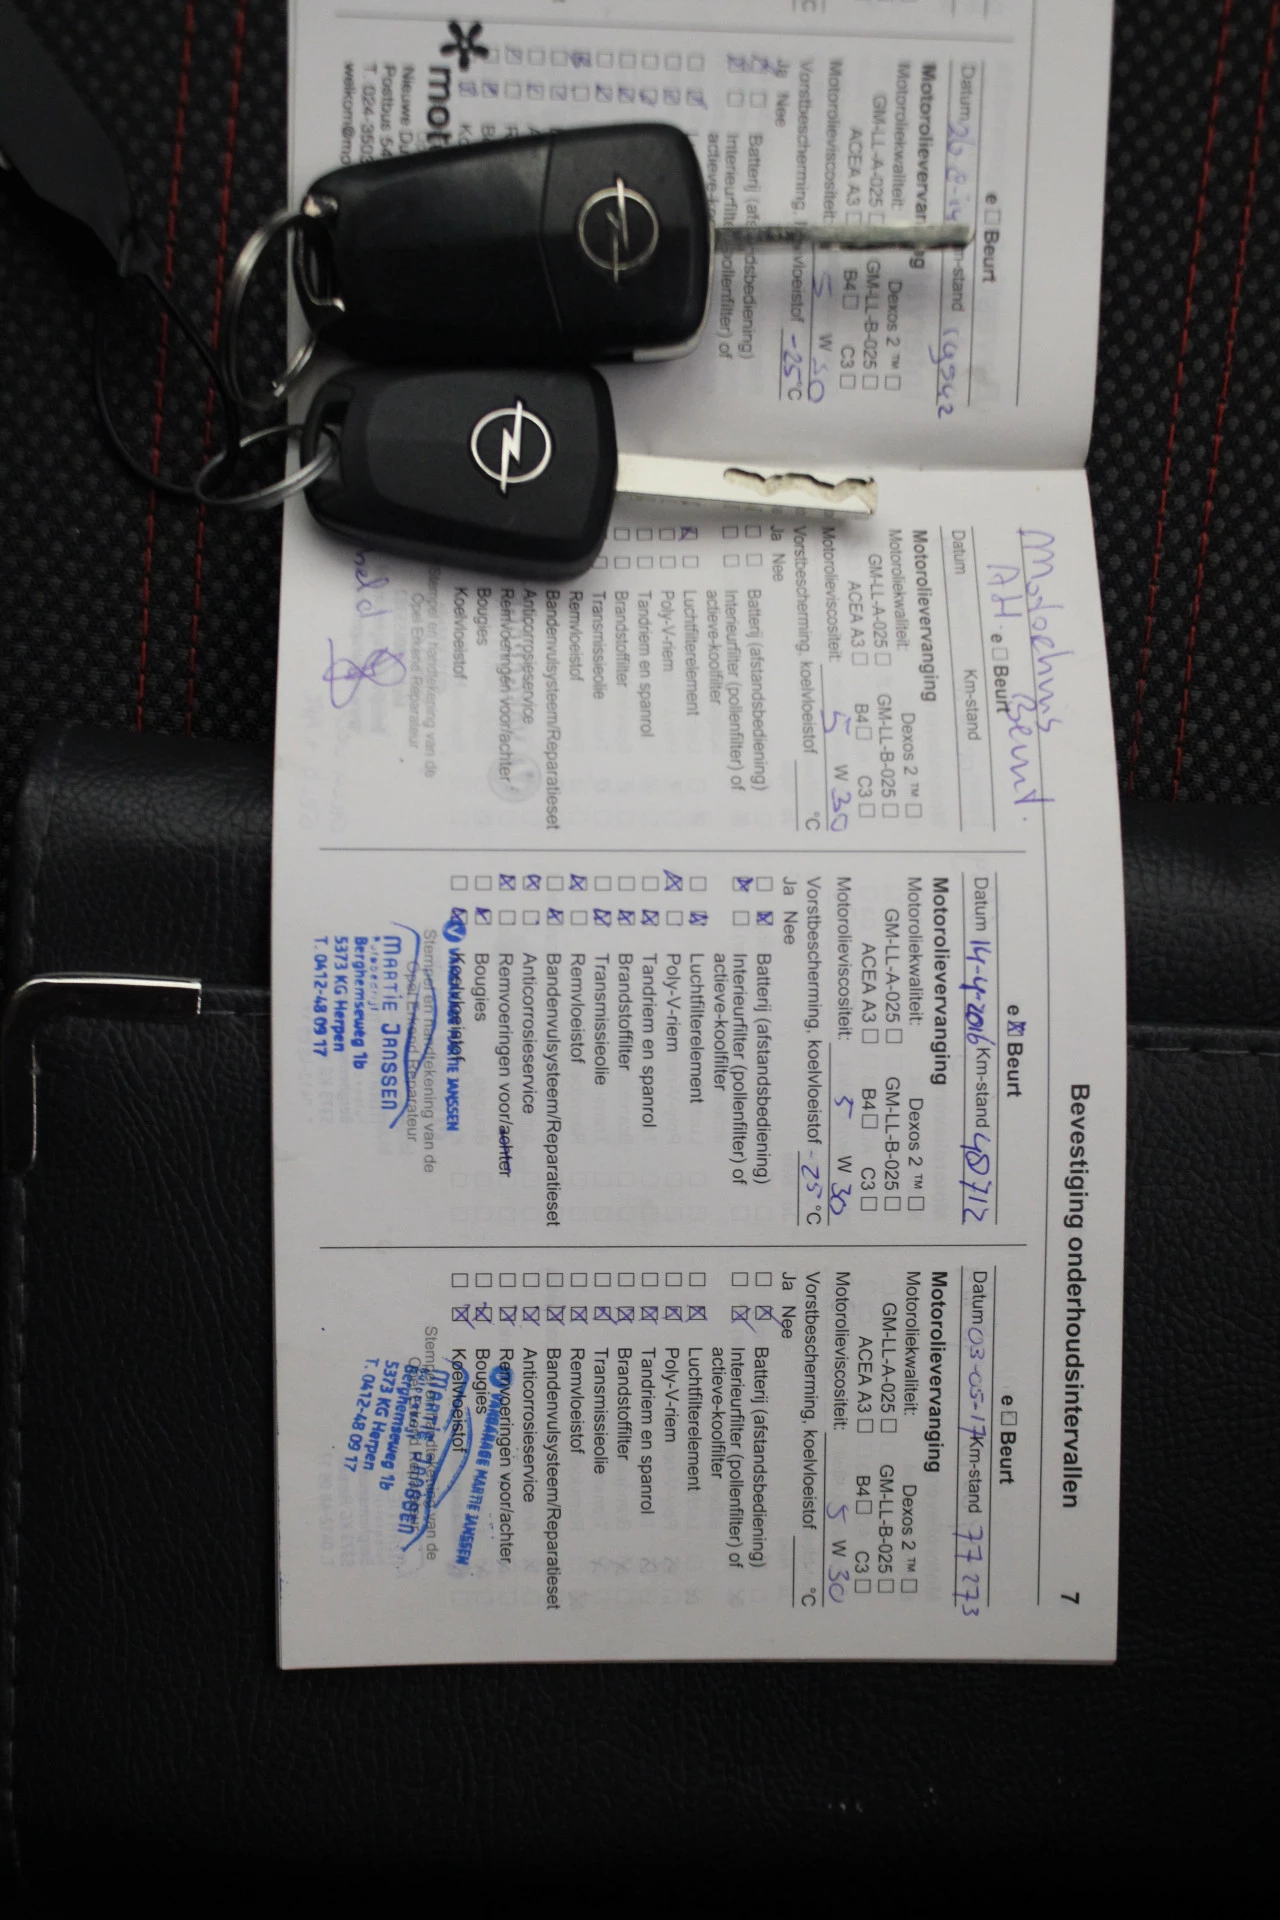 e Beurt
Datum 26-8-14 m-stand 19942
Motorolievervan ng
Motoroliekwaliteit: Dexos 2 ™
GM-LL-A-025 GM-LL-B-025
ACEA A3 B4 C3
Motorolieviscositeit: 5 W 30
Vorstbescherming, vloeistof -25 °C
Ja Nee
Batterij (afs dsbediening)
Interieurfilte pollenfilter) of
mot
Nieuwe Du
Postbus 54
T. 024-3503
welkom@mo
Bevestiging onderhoudsintervallen 7
Motorhuis
AH. Beurt.
e Beurt
Datum Km-stand
Motorolievervanging
Motoroliekwaliteit: Dexos 2 ™
GM-LL-A-025 GM-LL-B-025
ACEA A3 B4 C3
Motorolieviscositeit: 5 W 30
Vorstbescherming, koelvloeistof °C
Ja Nee
Batterij (afstandsbediening)
Interieurfilter (pollenfilter) of
actieve-koolfilter
Luchtfilterelement
Poly-V-riem
Tandriem en spanrol
Brandstoffilter
Transmissieolie
Remvloeistof
Bandenvulsysteem/Reparatieset
Anticorrosieservice
Remvoeringen voor/achter
Bougies
Koelvloeistof
Stempel en handtekening van de
Opel Erkend Reparateur
e Beurt
Datum 14-4-2016 Km-stand 48712
Motorolievervanging
Motoroliekwaliteit: Dexos 2 ™
GM-LL-A-025 GM-LL-B-025
ACEA A3 B4 C3
Motorolieviscositeit: 5 W 30
Vorstbescherming, koelvloeistof -25 °C
Ja Nee
Batterij (afstandsbediening)
Interieurfilter (pollenfilter) of
actieve-koolfilter
Luchtfilterelement
Poly-V-riem
Tandriem en spanrol
Brandstoffilter
Transmissieolie
Remvloeistof
Bandenvulsysteem/Reparatieset
Anticorrosieservice
Remvoeringen voor/achter
Bougies
Koelvloeistof
JANSSEN
Stempel en handtekening van de
Opel Erkend Reparateur
MARTIE JANSSEN
Berghemseweg 1b
5373 KG Herpen
T. 0412-48 09 17
e Beurt
Datum 03-05-17 Km-stand 77273
Motorolievervanging
Motoroliekwaliteit: Dexos 2 ™
GM-LL-A-025 GM-LL-B-025
ACEA A3 B4 C3
Motorolieviscositeit: 5 W 30
Vorstbescherming, koelvloeistof °C
Ja Nee
Batterij (afstandsbediening)
Interieurfilter (pollenfilter) of
actieve-koolfilter
Luchtfilterelement
Poly-V-riem
Tandriem en spanrol
Brandstoffilter
Transmissieolie
Remvloeistof
Bandenvulsysteem/Reparatieset
Anticorrosieservice
Remvoeringen voor/achter
Bougies
Koelvloeistof
VAKGARAGE MARTIE JANSSEN
MARTIE JANSSEN
Berghemseweg 1b
5373 KG Herpen
T. 0412-48 09 17